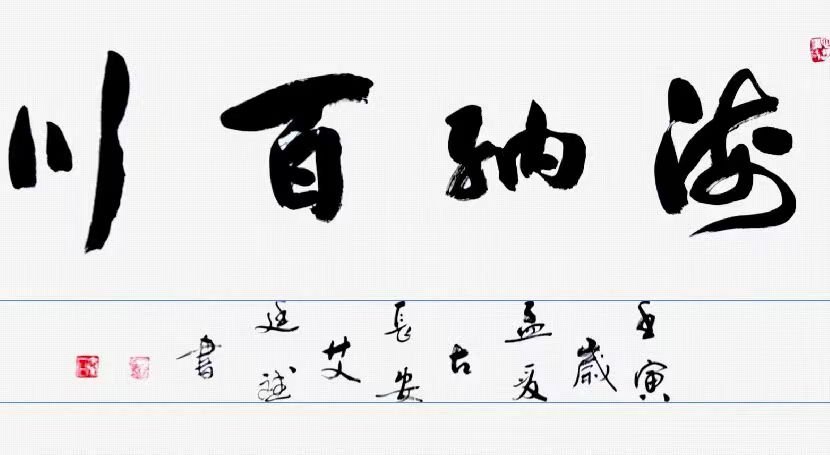 海纳百川
壬寅歲孟夏古長安艾廷斌書